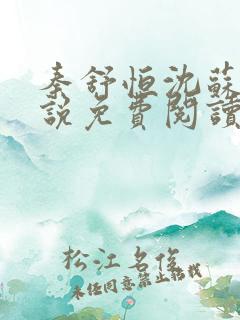 秦舒恒沈蘇
說免費閱讀
松江名俊
未经同意禁止转载